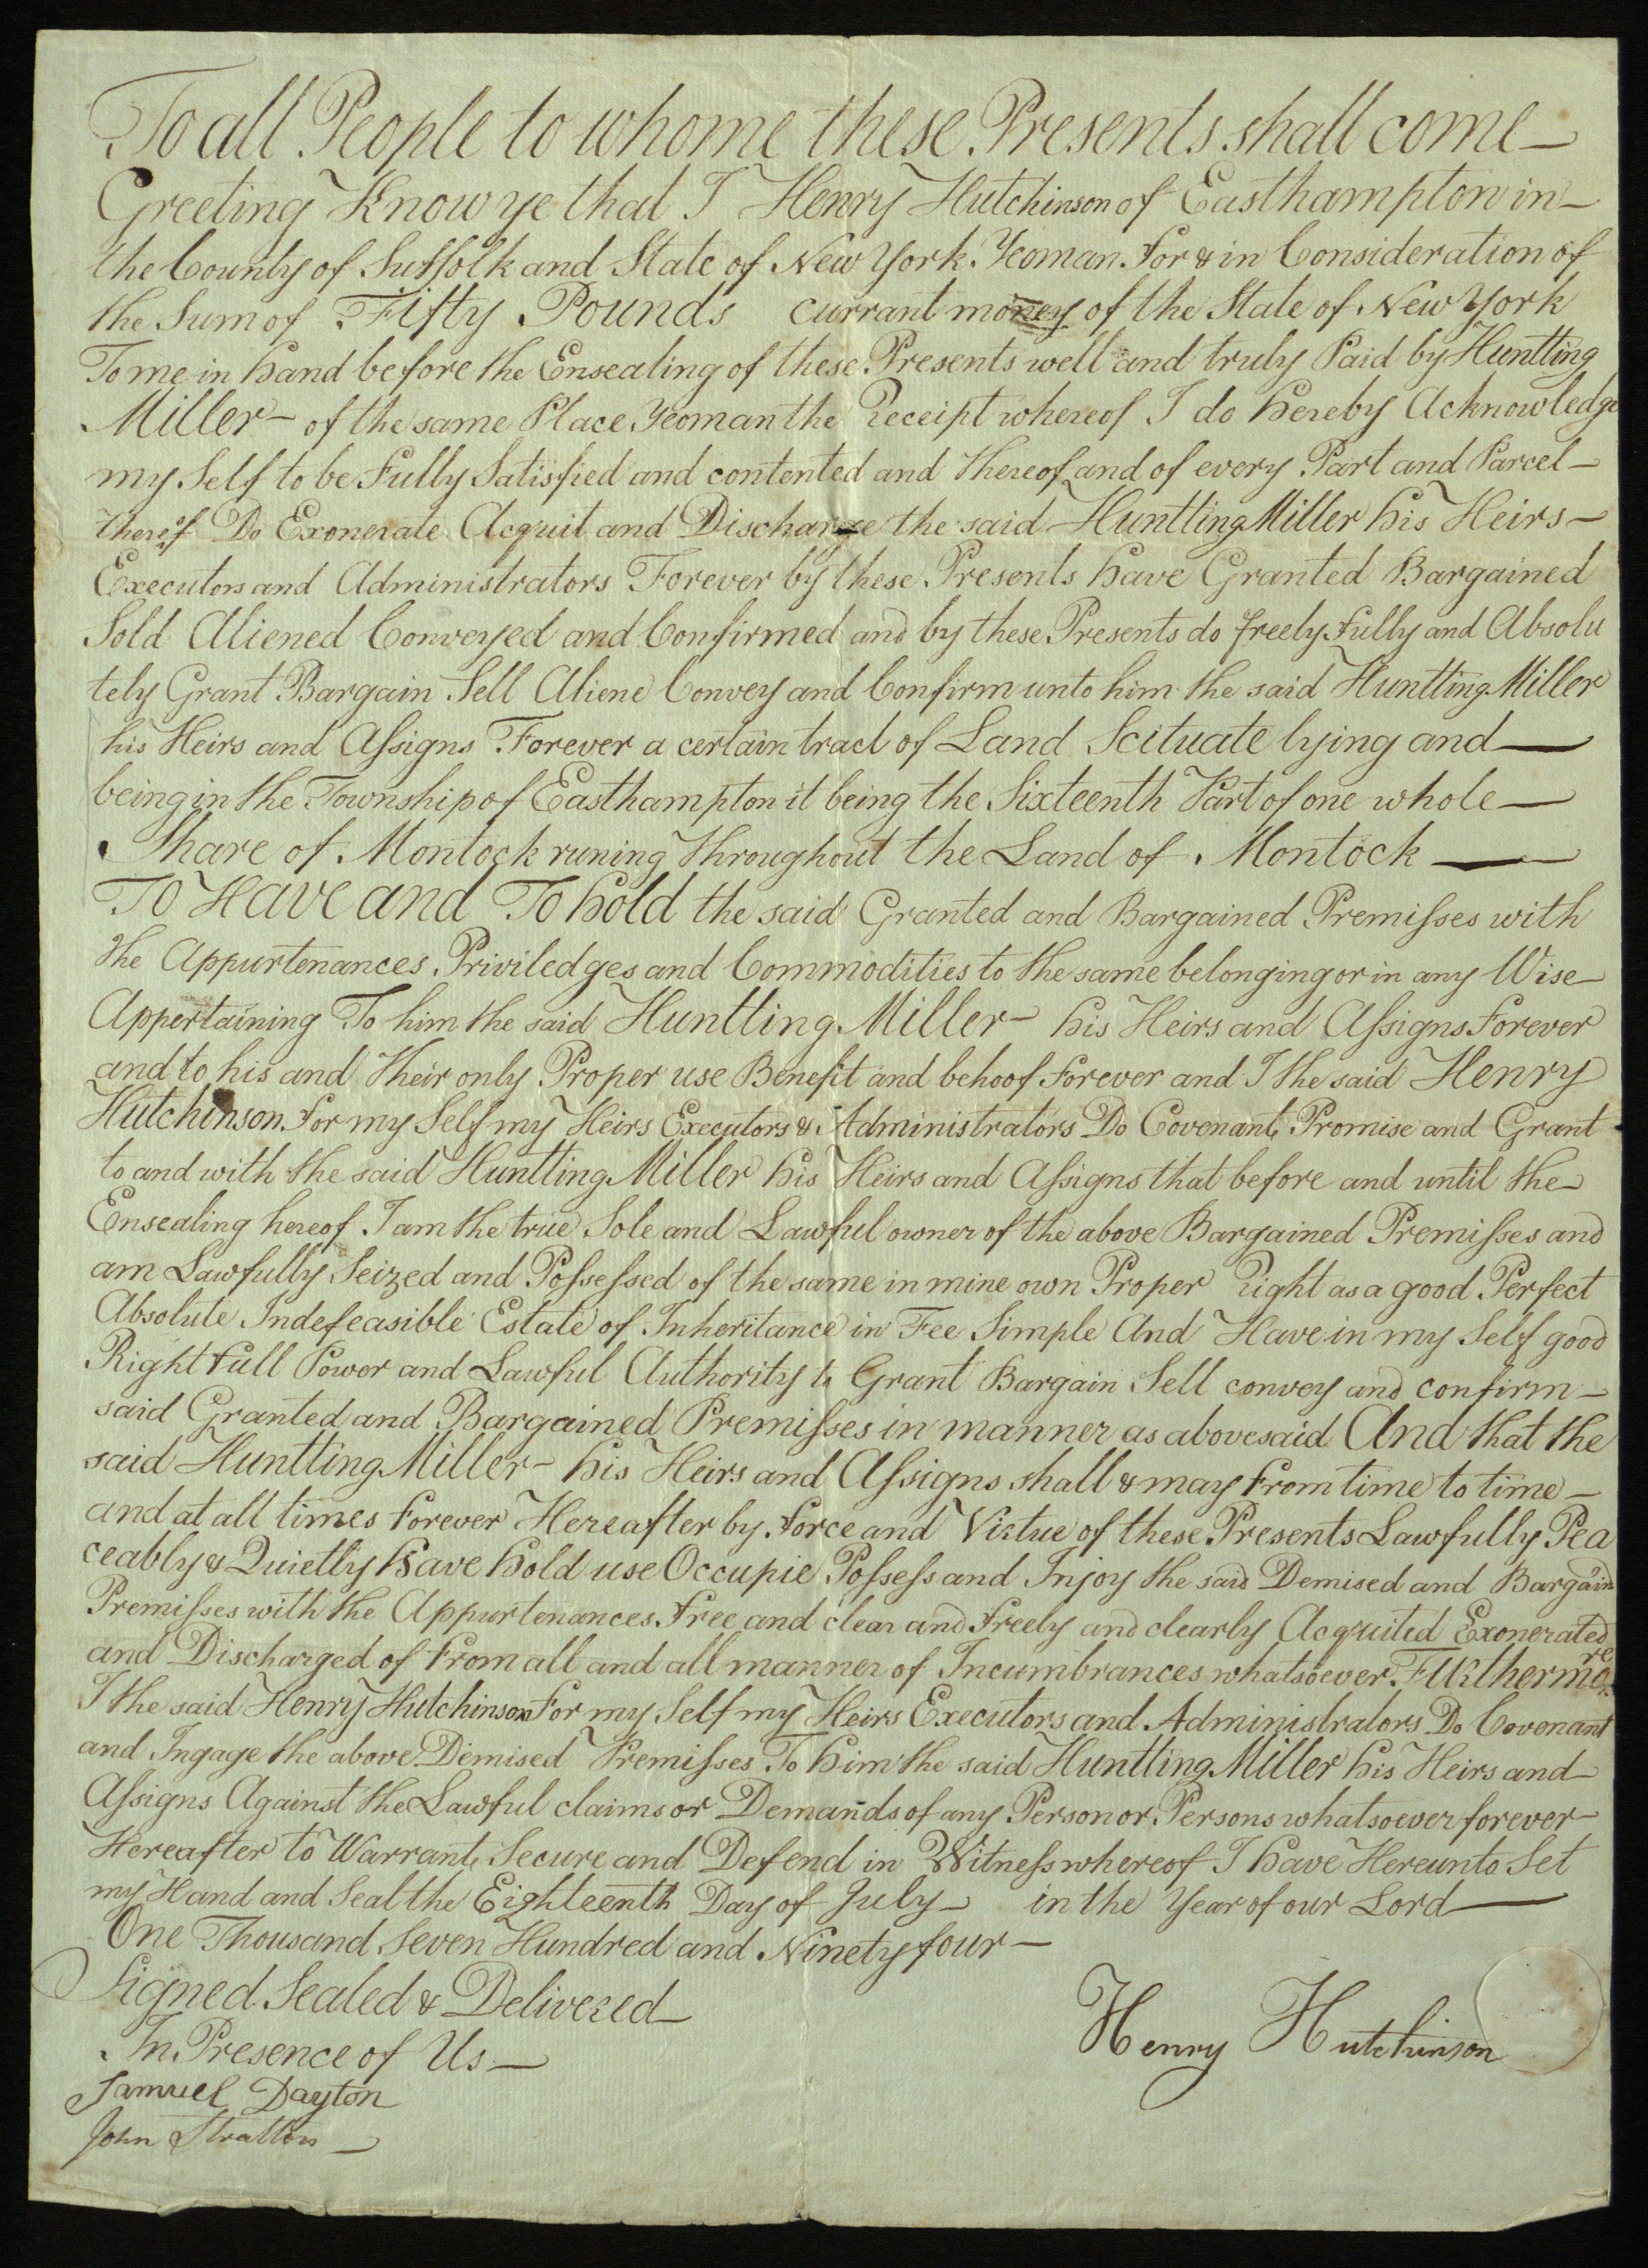 To all People to whome these Presents shall come—
Greeting Know ye that I Henry Hutchinson of Easthampton in—
the County of Suffolk and State of New York Yeoman For & in Consideration of
the Sum of Fifty Pounds currant money of the State of New York
To me in hand before the Ensealing of these Presents well and truly Paid by Huntting
Miller— of the same Place Yeoman the Receipt whereof I do hereby Acknowledge
my Self to be Fully Satisfied and contented and thereof and of every Part and Parcel—
thereof Do Exonerate Acquit and Discharge the said Huntting Miller his Heirs—
Executors and Administrators Forever by these Presents have Granted Bargained
Sold Aliened Conveyed and Confirmed and by these Presents do freely Fully and Absolu
tely Grant Bargain Sell Aliene Convey and Confirm unto him the said Huntting Miller
his Heirs and Assigns Forever a certain tract of Land Scituate lying and—
being in the Township of Easthampton it being the Sixteenth Part of one whole—
Share of Montock runing throughout the Land of Montock—
To Have and To hold the said Granted and Bargained Premisses with
the Appurtenances Priviledges and Commodities to the same belonging or in any Wise—
Appertaining To him the said Huntting Miller— his Heirs and Assigns Forever
and to his and their only Proper use Benefit and behoof Forever and I the said Henry
Hutchinson For my Self my Heirs Executors & Administrators Do Covenant Promise and Grant
to and with the said Huntting Miller his Heirs and Assigns that before and until the—
Ensealing hereof I am the true Sole and Lawful owner of the above Bargained Premisses and
am Lawfully Seized and Possessed of the same in mine own Proper Right as a good Perfect
Absolute Indefeasible Estate of Inheritance in Fee Simple And Have in my Self good
Right Full Power and Lawful Authority to Grant Bargain Sell convey and confirm—
said Granted and Bargained Premisses in manner as abovesaid And that the
said Huntting Miller— his Heirs and Assigns shall & may From time to time—
and at all times Forever Hereafter by Force and Virtue of these Presents Lawfully Pea
ceably & Quietly Have hold use Occupie Possess and Injoy the said Demised and Bargain
Premisses with the Appurtenances Free and clear and Freely and clearly Acquited Exonerated
and Discharged of From all and all manner of Incumbrances whatsoever Furthermore
I the said Henry Hutchinson For my Self my Heirs Executors and Administrators Do Covenant
and Ingage the above Demised Premisses To him the said Huntting Miller his Heirs and—
Assigns Against the Lawful claims or Demands of any Person or Persons whatsoever forever—
Hereafter to Warrant Secure and Defend in Witness whereof I have Hereunto Set
my Hand and Seal the Eighteenth Day of July— in the Year of our Lord—
One Thousand Seven Hundred and Ninety four—
Signed Sealed & Delivered—
In Presence of Us—
Henry Hutchinson
Samuel Dayton
John Stratton—